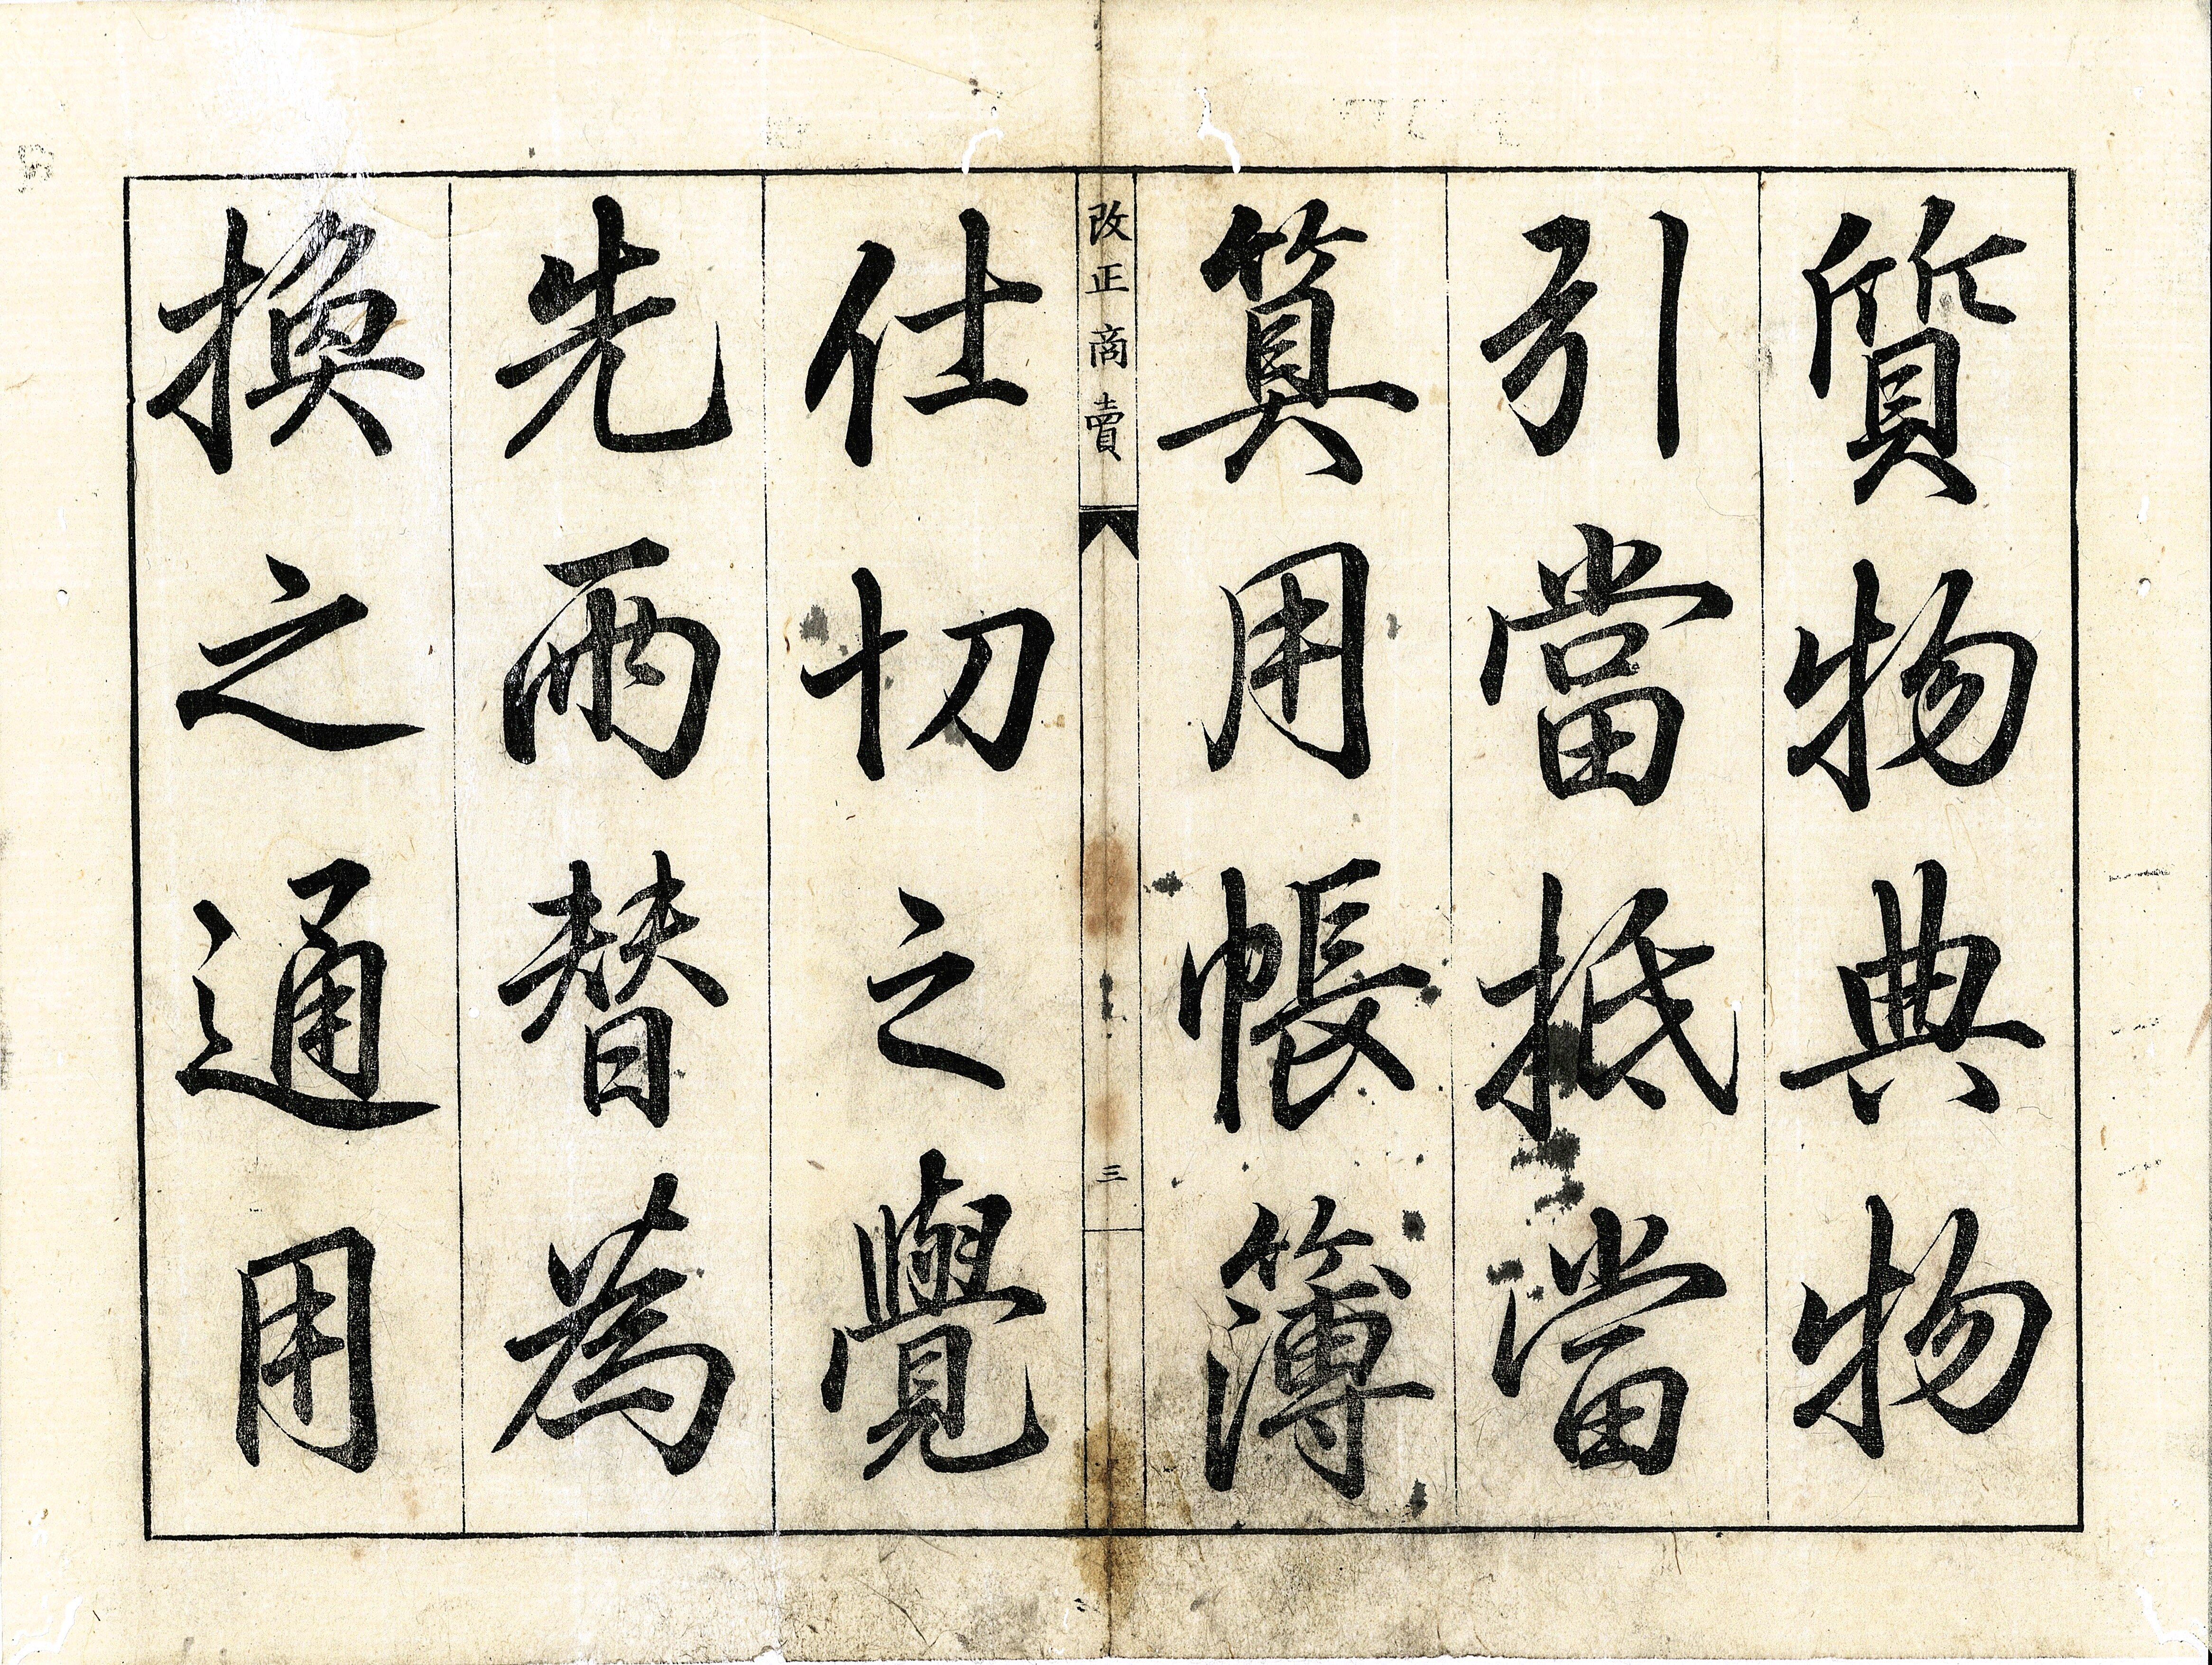 質物典物
引當抵當
算用帳簿
改正商賣
三
仕切之覺
先両替為
換之通用